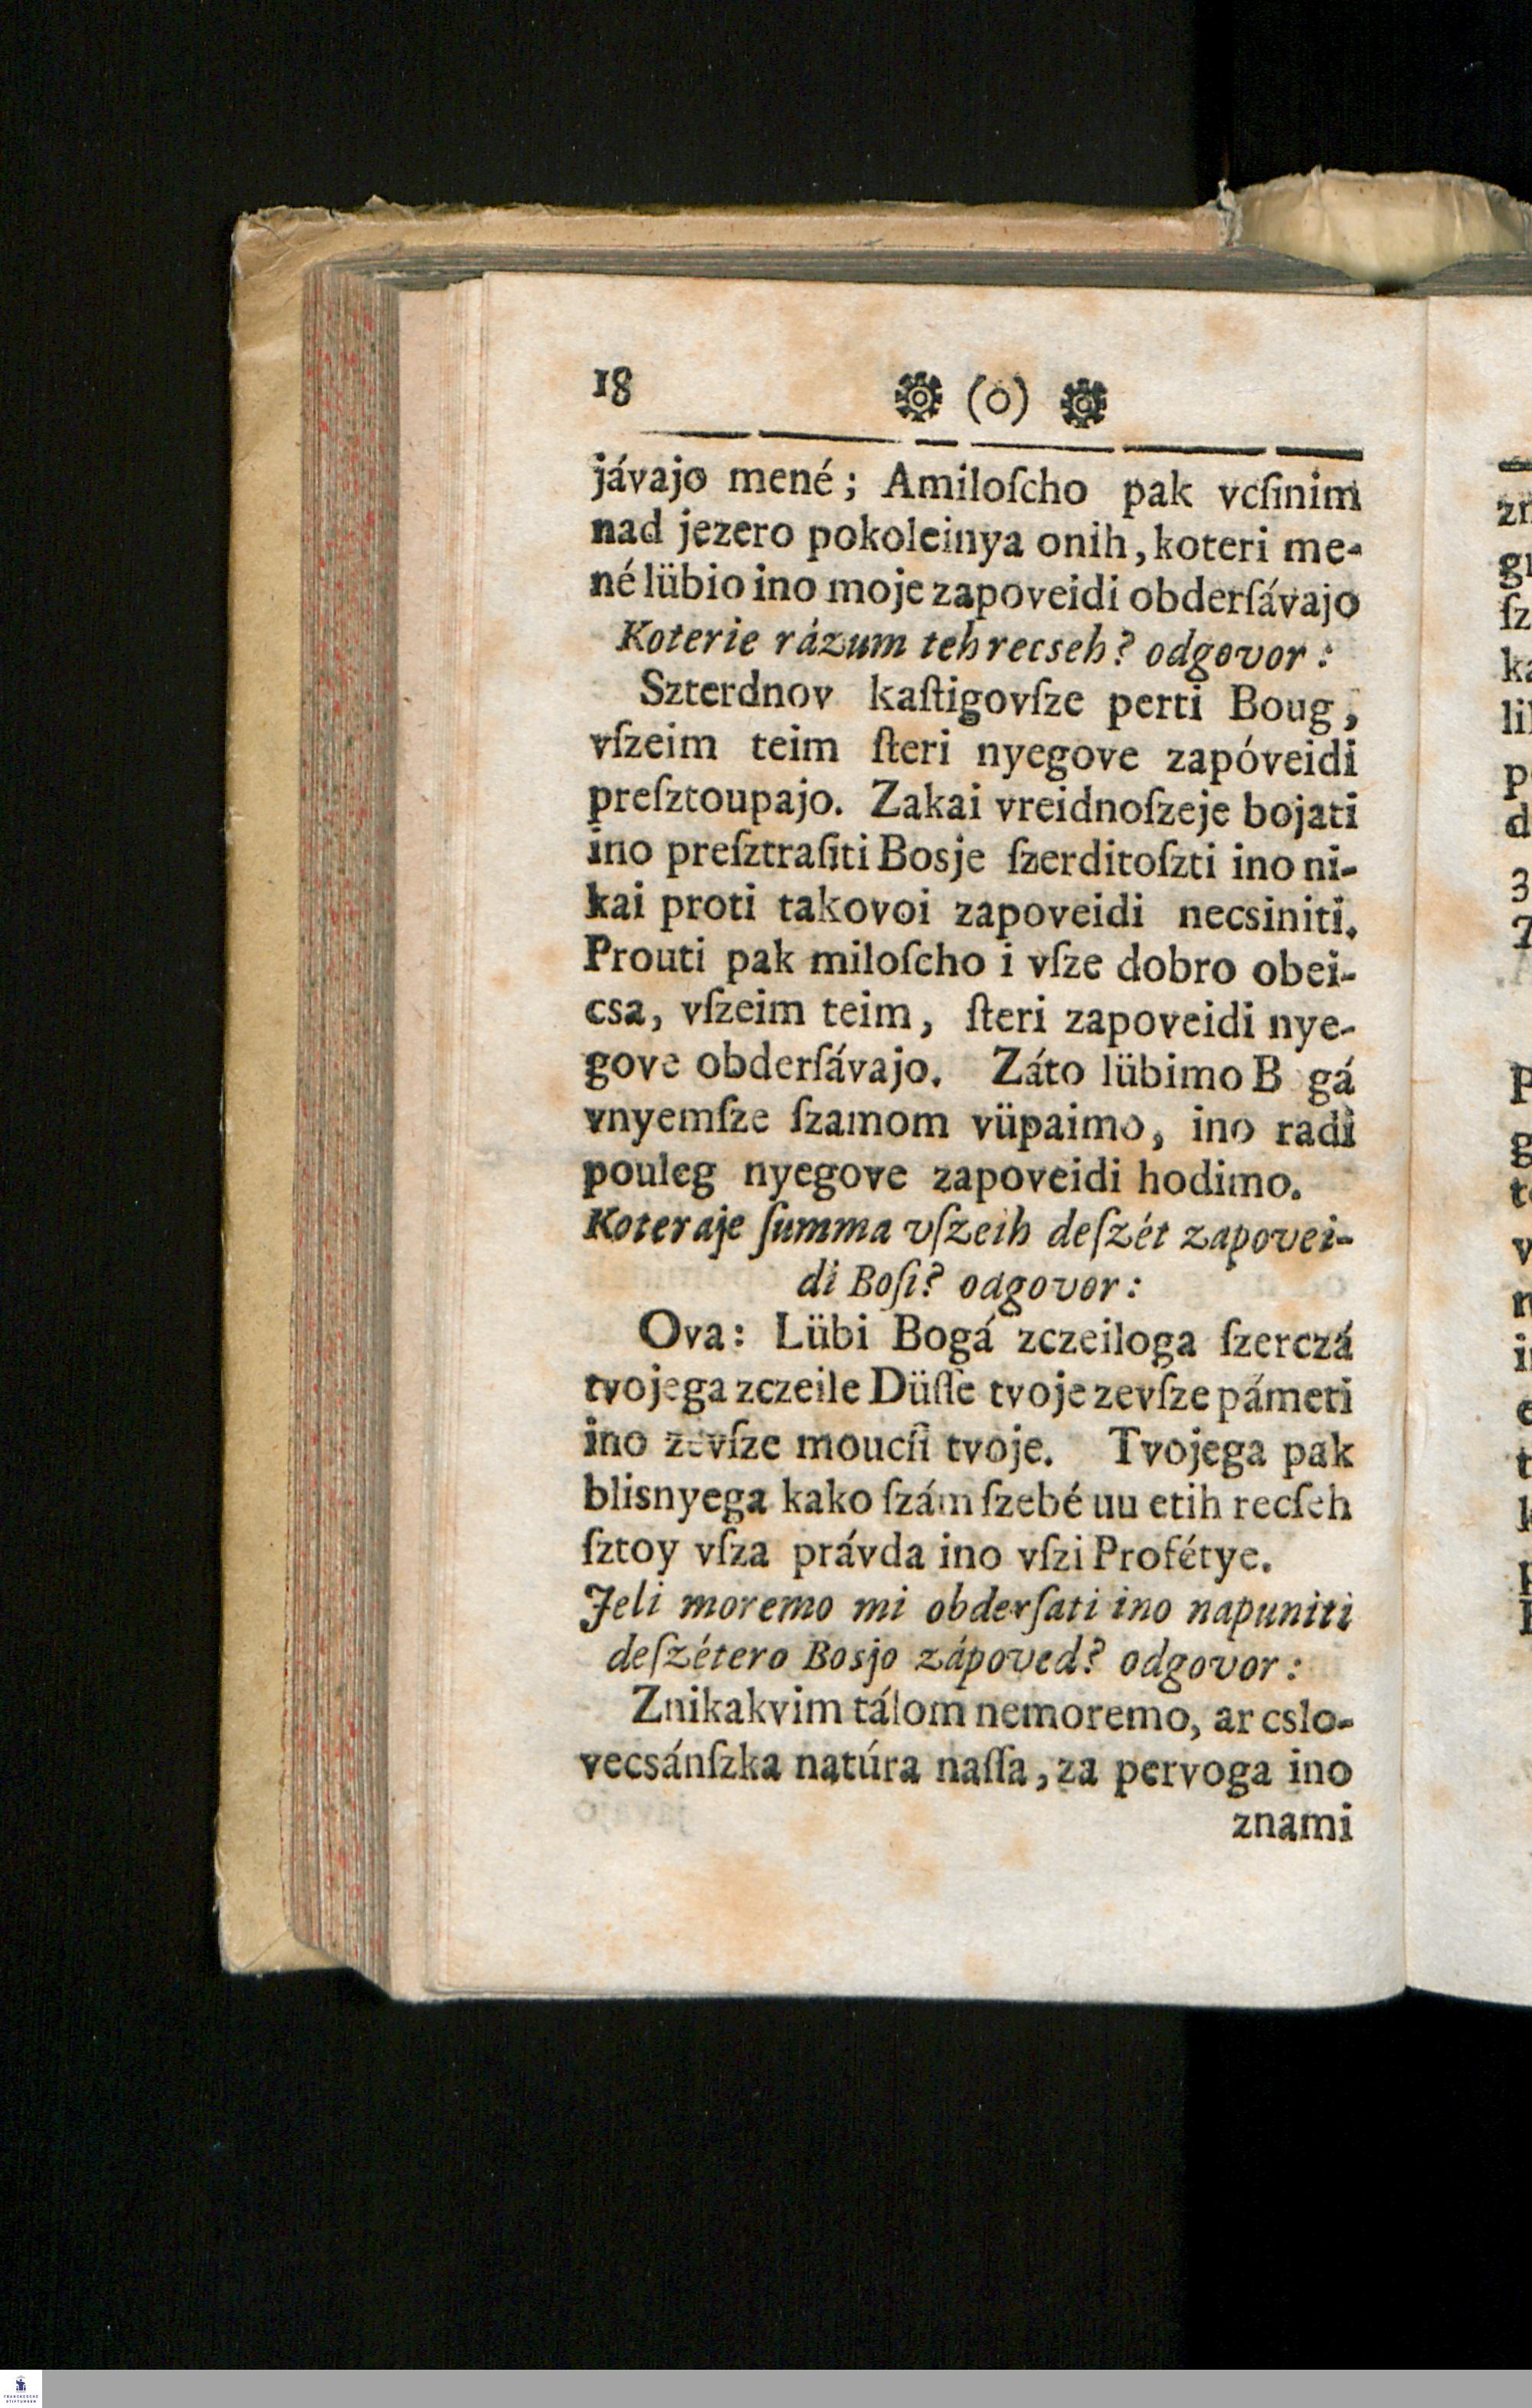 18 (o)
jávajo mené; Amiloſcho pak vcſinim
nad jezero pokoleinya onih, koteri me-
né lübio ino moje zapoveidi obderſávajo
Koterie rázum teh recseh? odgovor:
Szterdnov kaſtigovſze perti Boug,
vſzeim teim ſteri nyegove zapóveidi
preſztoupajo. Zakai vreidnoſzeje bojati
ino preſztraſiti Bosje ſzerditoſzti ino ni-
kai proti takovoi zapoveidi necsiniti.
Prouti pak miloſcho i vſze dobro obei-
csa, vſzeim teim, ſteri zapoveidi nye-
gove obderſávajo. Záto lübimo B gá
vnyemſze ſzamom vüpaimo, ino radi
pouleg nyegove zapoveidi hodimo.
Koteraje ſumma vſzeih deſzét zapovei-
di Boſi? odgovor:
Ova: Lübi Bogá zczeiloga ſzerczá
tvojega zczeile Düſſe tvoje zevſze pámeti
ino zevſze moucſi tvoje. Tvojega pak
blisnyega kako ſzám ſzebé uu etih recſeh
ſztoy vſza právda ino vſzi Profétye.
Jeli moremo mi obderſati ino napuniti
deſzétero Bosjo zápoved? odgovor:
Znikakvim tálom nemoremo, ar cslo-
vecsánſzka natúra naſſa, za pervoga ino
znami